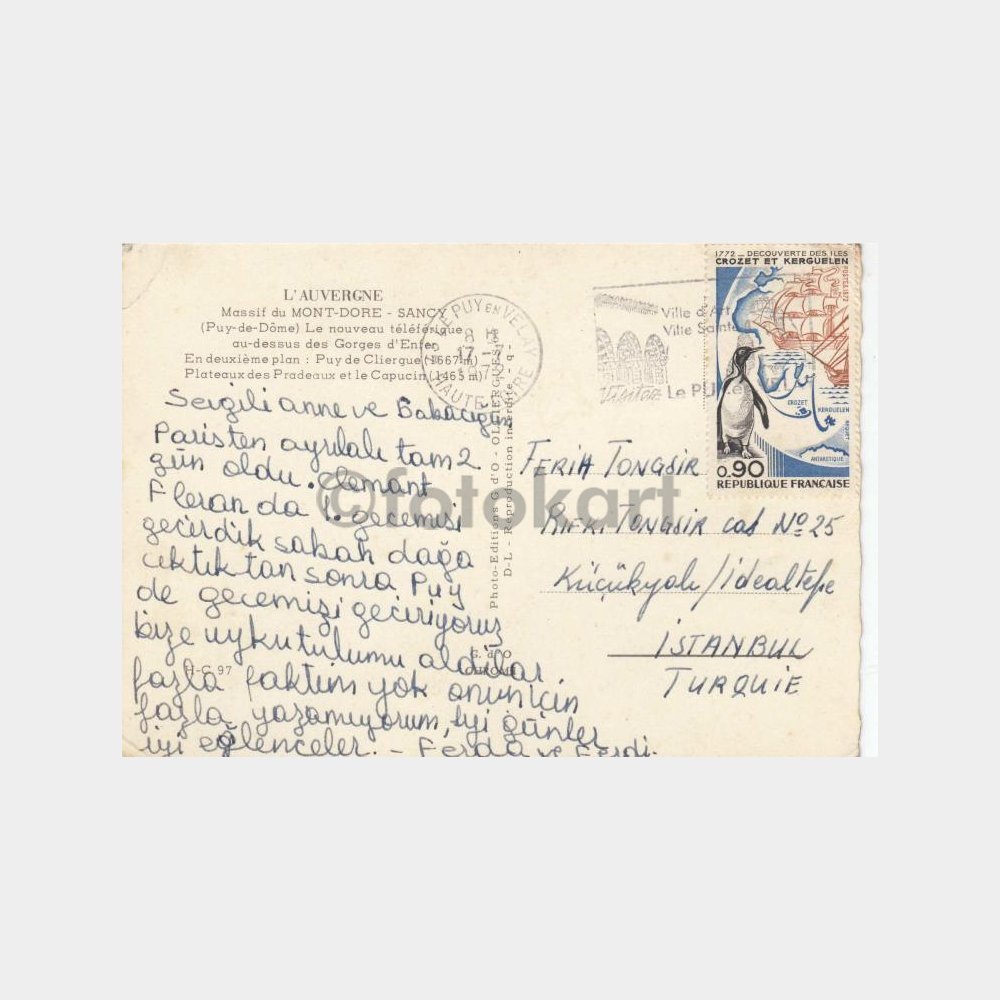 L'AUVERGNE
Massif du MONT-DORE - SANCY
(Puy-de-Dôme) Le nouveau téléférique
au-dessus des Gorges d'Enfer
En deuxième plan : Puy de Cliergue (1667 m)
Plateaux des Pradeaux et le Capucin (1465 m)
Sevgili anne ve Babacığım
Paristen ayrılalı tam 2
gün oldu. Clemant
Fleran da 1. gecemizi
geçirdik sabah dağa
çıktıktan sonra Puy
de gecemizi geçiriyoruz
bize uyku tulumu aldılar
fazla faktim yok onun için
fazla yazamıyorum, iyi günler
iyi eğlenceler. - Ferda ve Ferdi.
H-C 97
G. d'O
Photo-Editions G. d'O - OLLIERGUES
D-L - Reproduction interdite
LE PUY EN VELAY
17 -
HAUTE LOIRE
Ville d'Art
Ville Sainte
Visitez
Le PUY
1772 _ DECOUVERTE DES ILES
CROZET ET KERGUELEN
POSTES 1972
CROZET
KERGUELEN
ANTARCTIQUE
0,90
REPUBLIQUE FRANCAISE
FERİH TONGSİR
RIFKI TONGSİR cad No 25
Küçükyalı/İdealtepe
İSTANBUL
TURQUIE
©fotokart